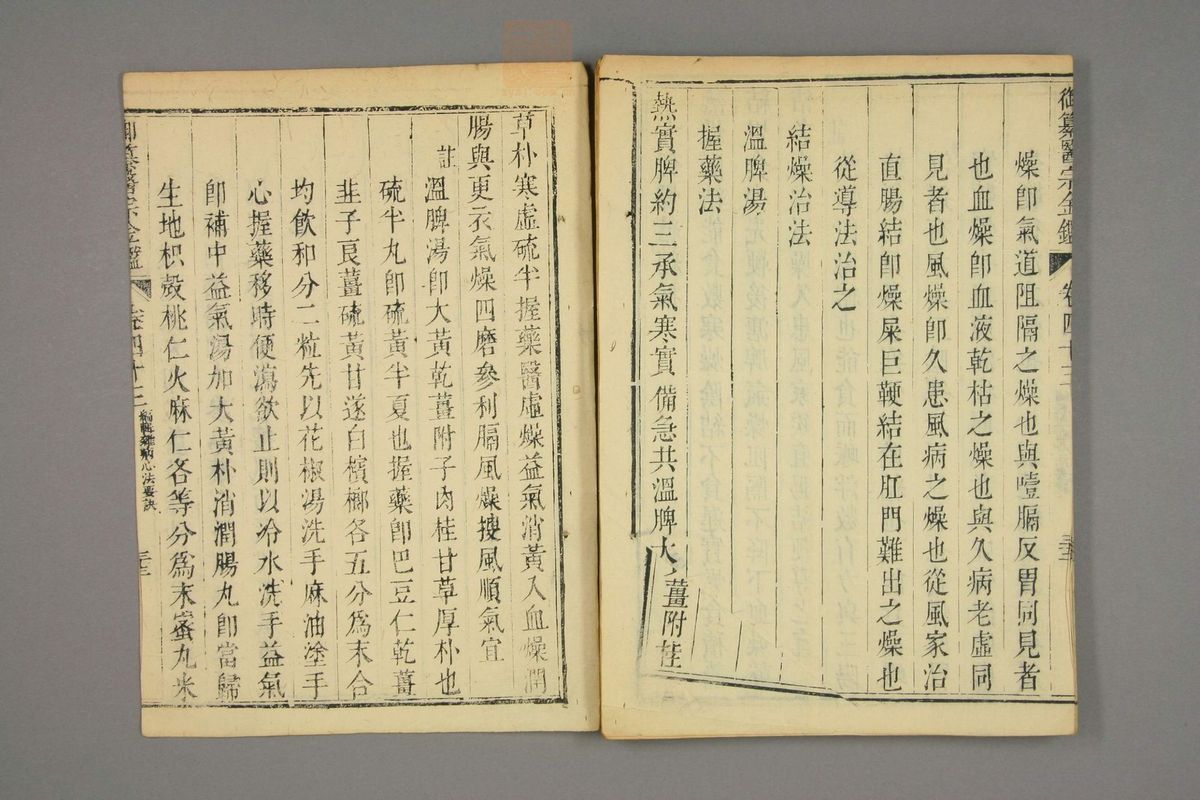 御纂醫宗金鑑 卷四十三
燥卽氣道阻隔之燥也與噎膈反胃同見者
也血燥卽血液乾枯之燥也與久病老虛同
見者也風燥卽久患風病之燥也從風家治
直腸結卽燥屎巨鞕結在肛門難出之燥也
從導法治之
結燥治法
溫脾湯
握藥法
熱實脾約三承氣寒實備急共溫脾大 薑附桂
草朴寒虛硫半握藥醫虛燥益氣消黃入血燥潤
腸與更衣氣燥四磨參利膈風燥搜風順氣宜
註溫脾湯卽大黃乾薑附子肉桂甘草厚朴也
硫半丸卽硫黃半夏也握藥卽巴豆仁乾薑
韭子良薑硫黃甘遂白檳榔各五分爲末合
均飮和分二粒先以花椒湯洗手麻油塗手
心握藥移時便瀉欲止則以冷水洗手益氣
卽補中益氣湯加大黃朴消潤腸丸卽當歸
生地枳殼桃仁火麻仁各等分爲末蜜丸米
御纂醫宗金鑑 卷四十三 編輯雜病心法要訣 三三